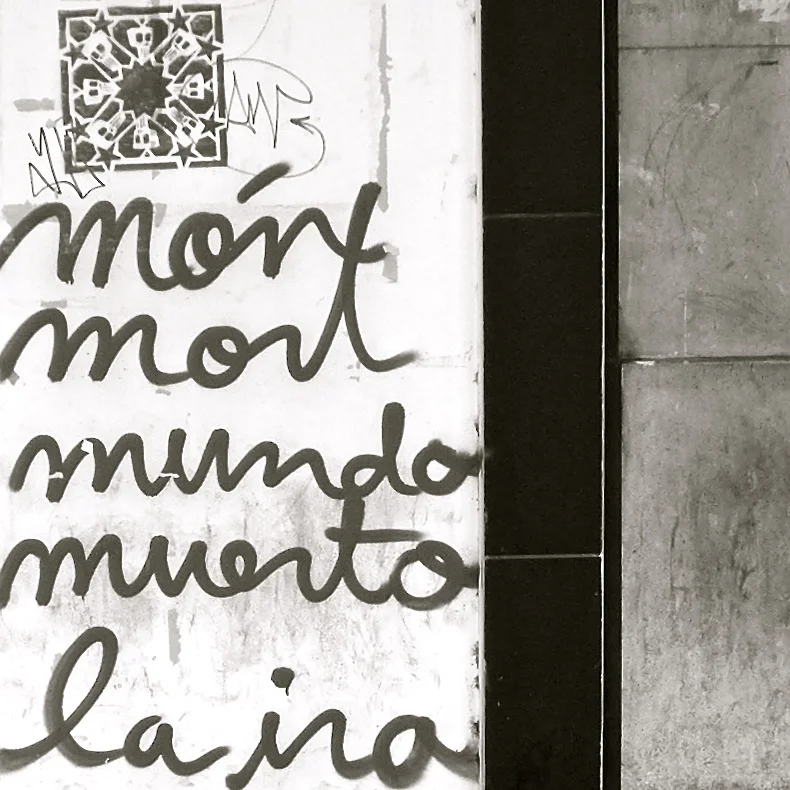 món
mort
mundo
muerto
la ira